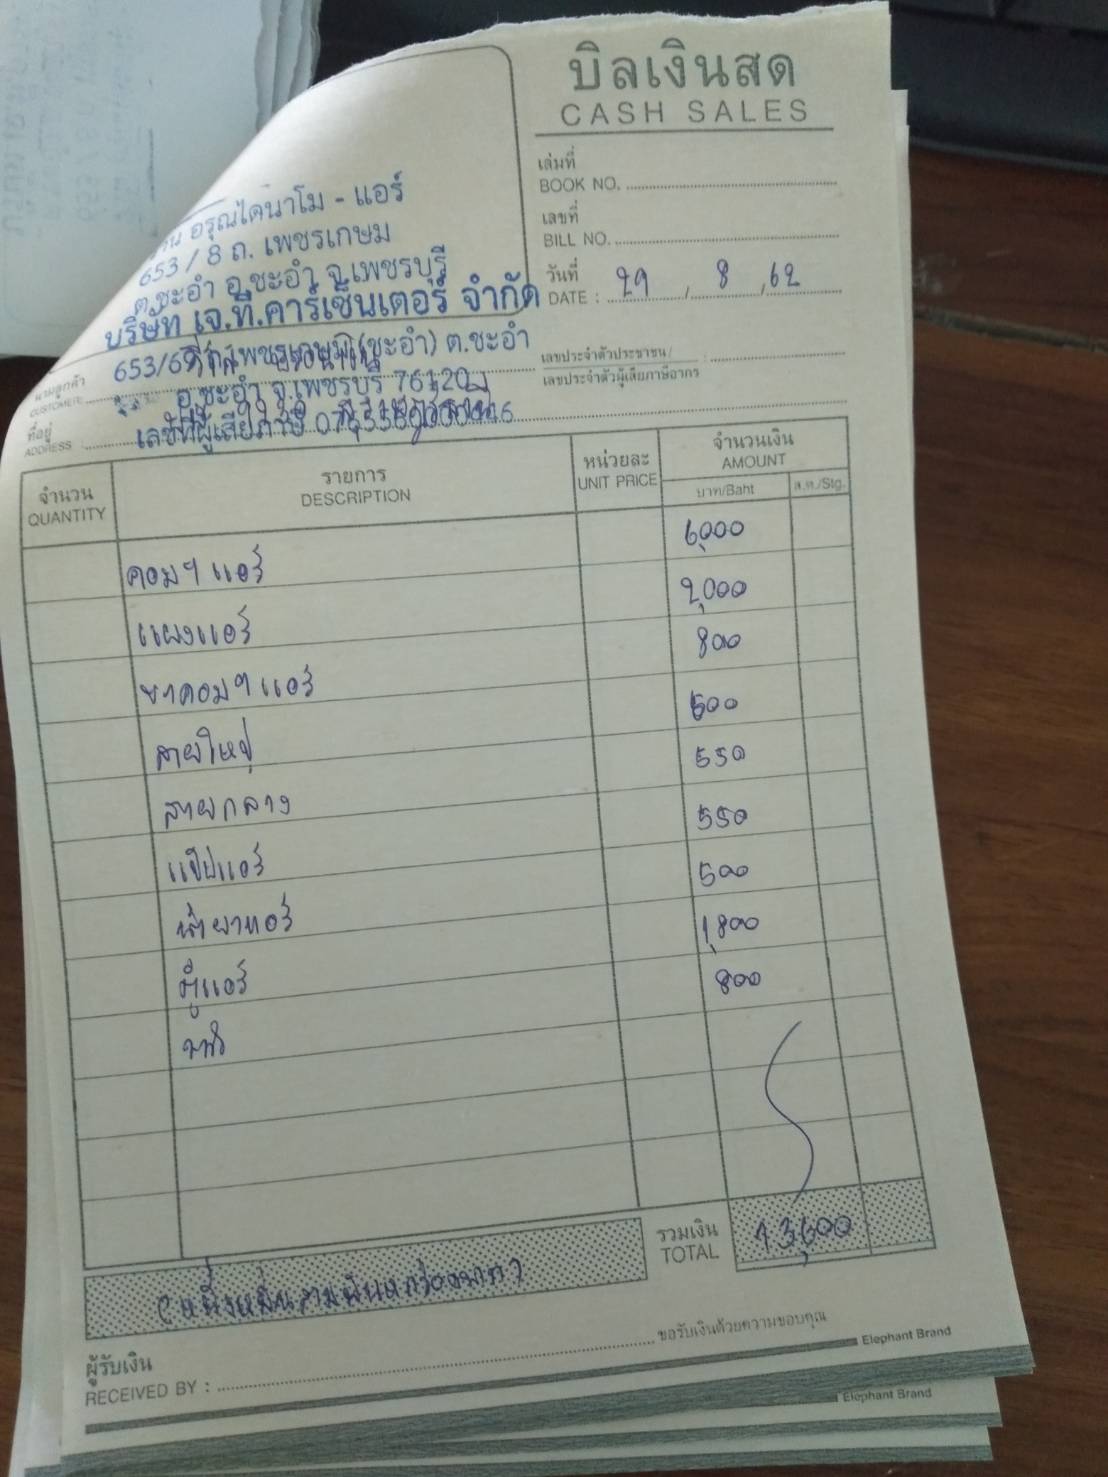 บิลเงินสด
CASH SALES
เล่มที่
BOOK NO.
เลขที่
BILL NO.
วันที่
DATE : 29 / 8 / 62
อรุณไดนาโม - แอร์
653 / 8 ถ. เพชรเกษม
ต.ชะอำ อ.ชะอำ จ.เพชรบุรี
บริษัท เจ.ที.คาร์เซ็นเตอร์ จำกัด
653/6 ถ.เพชรเกษม (ชะอำ) ต.ชะอำ
อ.ชะอำ จ.เพชรบุรี 76120
เลขที่ผู้เสียภาษี
นามลูกค้า
CUSTOMER
ที่อยู่
ADDRESS
เลขประจำตัวประชาชน/ :
เลขประจำตัวผู้เสียภาษีอากร
จำนวน รายการ หน่วยละ จำนวนเงิน
QUANTITY DESCRIPTION UNIT PRICE AMOUNT
บาท/Baht ส.ต./Stg.
คอมฯ แอร์ 6,000
แผงแอร์ 2,000
ขาคอมฯ แอร์ 800
สายใหญ่ 600
สายกลาง 550
แป๊ปแอร์ 550
น้ำยาแอร์ 500
ตู้แอร์ 1,800
800
รวมเงิน
TOTAL 13,600
(หนึ่งหมื่นสามพันหกร้อยบาท)
ผู้รับเงิน
RECEIVED BY : ขอรับเงินด้วยความขอบคุณ
Elephant Brand
Elephant Brand